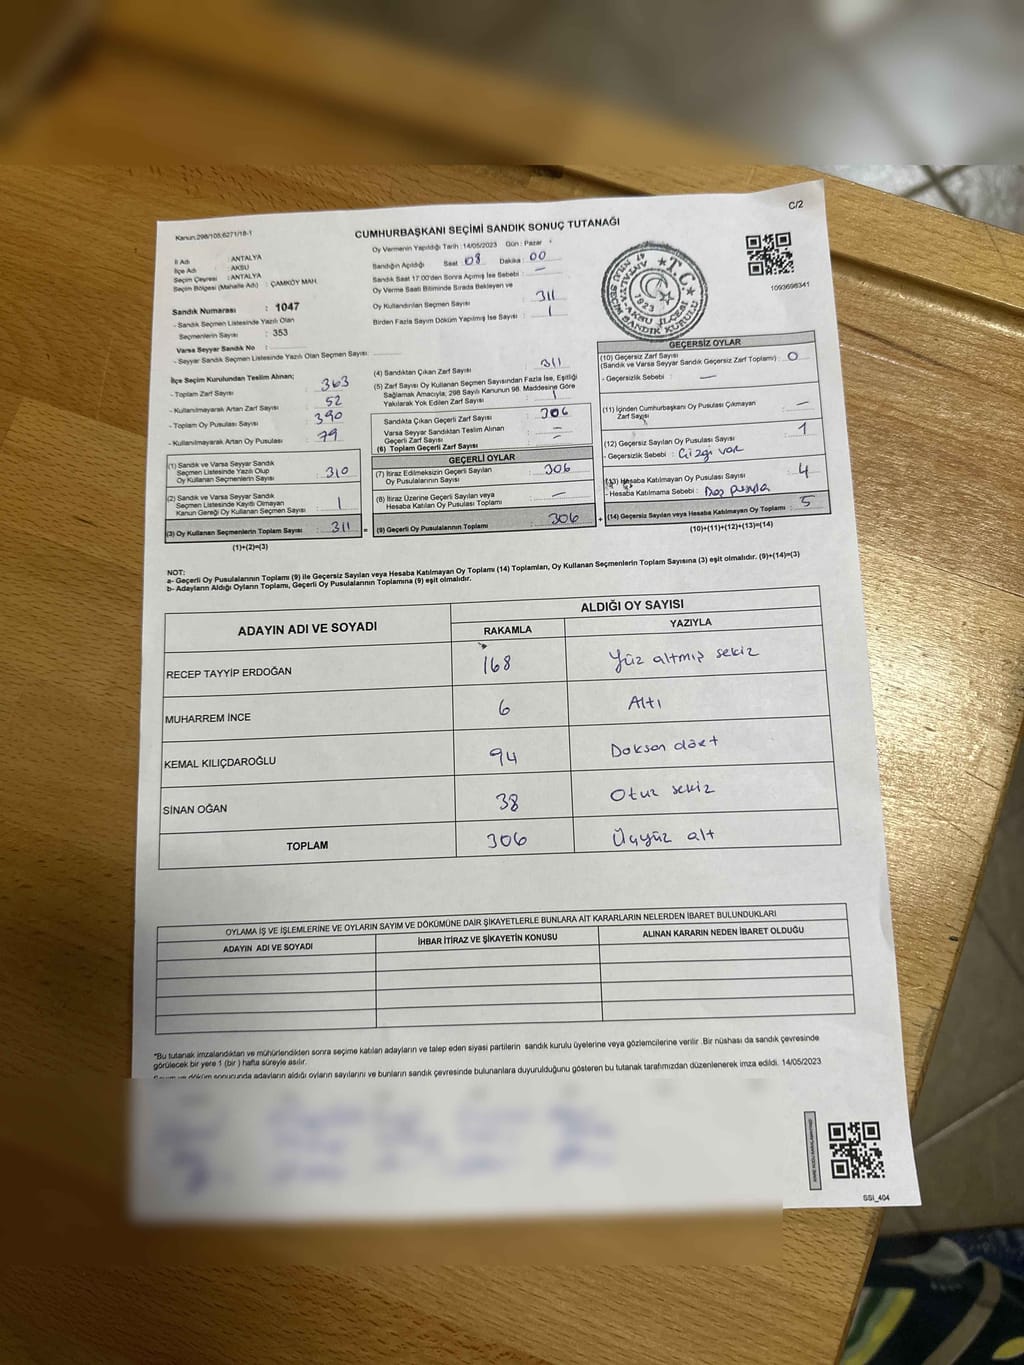 C/2
Kanun:298/105;6271/18-1
CUMHURBAŞKANI SEÇİMİ SANDIK SONUÇ TUTANAĞI
Oy Vermenin Yapıldığı Tarih : 14/05/2023 Gün : Pazar
İl Adı : ANTALYA
İlçe Adı : AKSU
Seçim Çevresi : ANTALYA
Seçim Bölgesi (Mahalle Adı) : ÇAMKÖY MAH.
Sandık Numarası : 1047
- Sandık Seçmen Listesinde Yazılı Olan
Seçmenlerin Sayısı : 353
Varsa Seyyar Sandık No :
- Seyyar Sandık Seçmen Listesinde Yazılı Olan Seçmen Sayısı:
Sandığın Açıldığı Saat 08 Dakika : 00
Sandık Saat 17:00'den Sonra Açımış İse Sebebi : —
Oy Verme Saati Bitiminde Sırada Bekleyen ve
Oy Kullandırılan Seçmen Sayısı 311
Birden Fazla Sayım Döküm Yapılmış İse Sayısı : 1
T.C.
1923
1093698341
İlçe Seçim Kurulundan Teslim Alınan;
- Toplam Zarf Sayısı : 363
- Kullanılmayarak Artan Zarf Sayısı : 52
- Toplam Oy Pusulası Sayısı : 390
- Kullanılmayarak Artan Oy Pusulası : 79
(1) Sandık ve Varsa Seyyar Sandık
Seçmen Listesinde Yazılı Olup
Oy Kullanan Seçmenlerin Sayısı : 310
(2) Sandık ve Varsa Seyyar Sandık
Seçmen Listesinde Kayıtlı Olmayan
Kanun Gereği Oy Kullanan Seçmen Sayısı : 1
(3) Oy Kullanan Seçmenlerin Toplam Sayısı : 311 =
(1)+(2)=(3)
(4) Sandıktan Çıkan Zarf Sayısı : 311
(5) Zarf Sayısı Oy Kullanan Seçmen Sayısından Fazla İse, Eşitliği
Sağlamak Amacıyla; 298 Sayılı Kanunun 98. Maddesine Göre
Yakılarak Yok Edilen Zarf Sayısı : 1
Sandıkta Çıkan Geçerli Zarf Sayısı : 306
Varsa Seyyar Sandıktan Teslim Alınan
Geçerli Zarf Sayısı : —
(6) Toplam Geçerli Zarf Sayısı : —
GEÇERLİ OYLAR
(7) İtiraz Edilmeksizin Geçerli Sayılan
Oy Pusulasının Sayısı : 306
(8) İtiraz Üzerine Geçerli Sayılan veya
Hesaba Katılan Oy Pusulası Toplamı : —
(9) Geçerli Oy Pusulalarının Toplamı : 306 +
GEÇERSİZ OYLAR
(10) Geçersiz Zarf Sayısı
(Sandık ve Varsa Seyyar Sandık Geçersiz Zarf Toplamı) : 0
- Geçersizlik Sebebi : —
(11) İçinden Cumhurbaşkanı Oy Pusulası Çıkmayan
Zarf Sayısı : —
(12) Geçersiz Sayılan Oy Pusulası Sayısı : 1
- Geçersizlik Sebebi : Çizgi var
(13) Hesaba Katılmayan Oy Pusulası Sayısı : 4
- Hesaba Katılmama Sebebi : Boş pusula
(14) Geçersiz Sayılan veya Hesaba Katılmayan Oy Toplamı : 5
(10)+(11)+(12)+(13)=(14)
NOT:
a- Geçerli Oy Pusulalarının Toplamı (9) ile Geçersiz Sayılan veya Hesaba Katılmayan Oy Toplamı (14) Toplamları, Oy Kullanan Seçmenlerin Toplam Sayısına (3) eşit olmalıdır. (9)+(14)=(3)
b- Adayların Aldığı Oyların Toplamı, Geçerli Oy Pusulalarının Toplamına (9) eşit olmalıdır.
ADAYIN ADI VE SOYADI ALDIĞI OY SAYISI
RAKAMLA YAZIYLA
RECEP TAYYİP ERDOĞAN 168 Yüz altmış sekiz
MUHARREM İNCE 6 Altı
KEMAL KILIÇDAROĞLU 94 Doksan dört
SİNAN OĞAN 38 Otuz sekiz
TOPLAM 306 Üçyüz altı
OYLAMA İŞ VE İŞLEMLERİNE VE OYLARIN SAYIM VE DÖKÜMÜNE DAİR ŞİKAYETLERLE BUNLARA AİT KARARLARIN NELERDEN İBARET BULUNDUKLARI
ADAYIN ADI VE SOYADI İHBAR İTİRAZ VE ŞİKAYETİN KONUSU ALINAN KARARIN NEDEN İBARET OLDUĞU
*Bu tutanak imzalandıktan ve mühürlendikten sonra seçime katılan adayların ve talep eden siyasi partilerin sandık kurulu üyelerine veya gözlemcilerine verilir .Bir nüshası da sandık çevresinde
görülecek bir yere 1 (bir ) hafta süreyle asılır.
Sayım ve döküm sonucunda adayların aldığı oyların sayılarını ve bunların sandık çevresinde bulunanlara duyurulduğunu gösteren bu tutanak tarafımızdan düzenlenerek imza edildi. 14/05/2023
SSİ_404